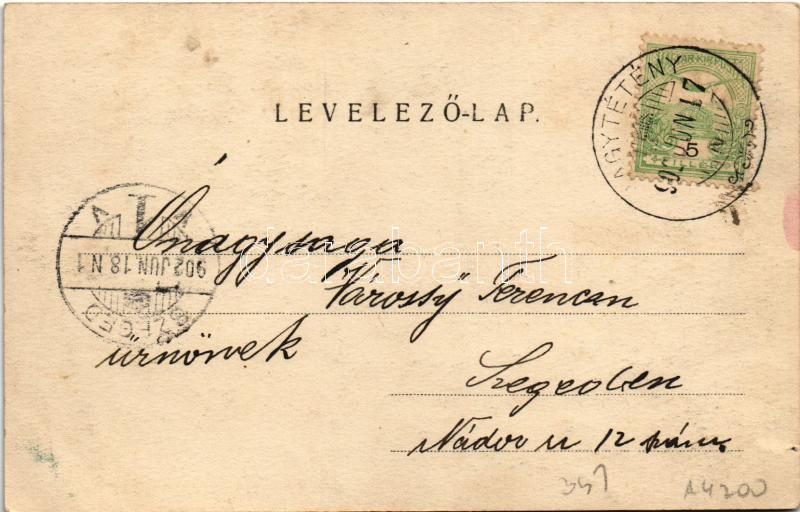 LEVELEZŐ-LAP.
MAGYAR KIR
5
FILLÉR
NAGYTÉTÉNY
902 JUN 17
SZEGED
902 JUN.18.N.1
Őnagysaga
Várossÿ Ferencan
úrnőnek
Szegeden
Nádor u 12 szám
darabanth
A4200